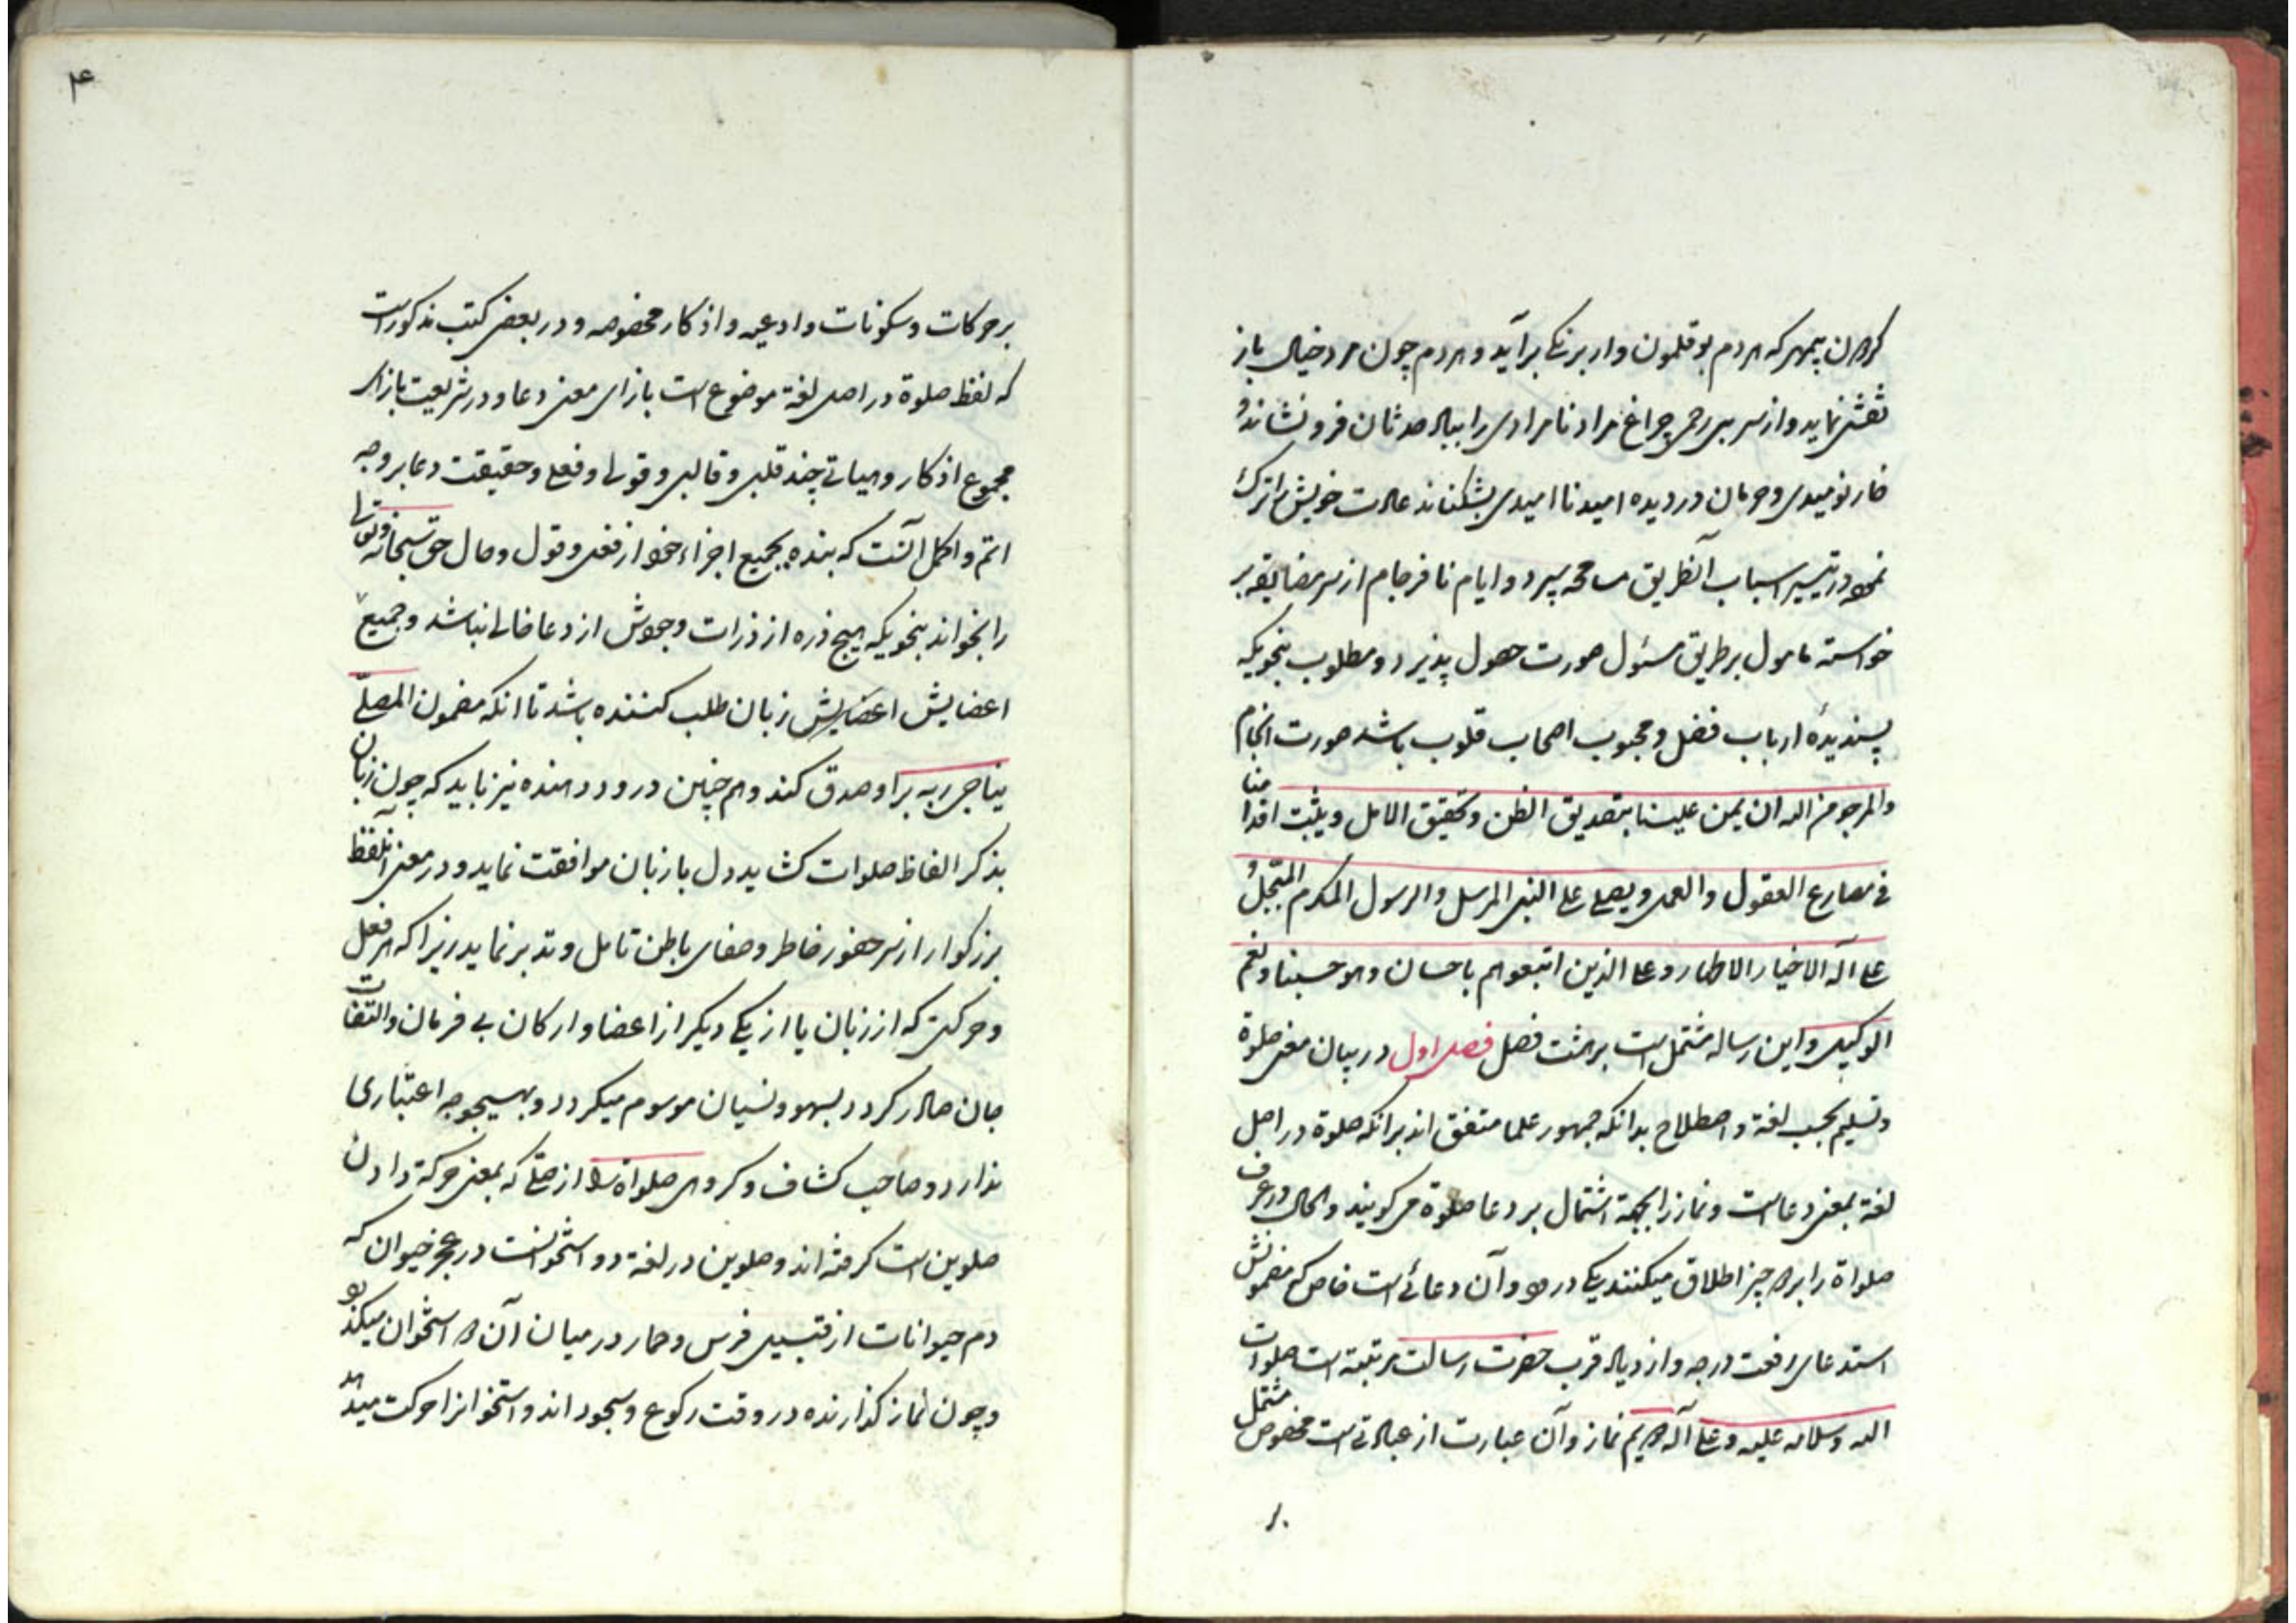 کردان سپهر که هر دم بوقلمون وار برنگی برآید و هر دم چون مرد خیال باز
نقشی نماید و از سر بی رحمی چراغ مراد نامرادی را بباد حدثان فرو نشاند و
خار نومیدی و حرمان در دیده امید ناامیدی بشکناند عادت خویش را ترک
نموده در تیسیر اسباب آنطریق مسامحه سپرد و ایام نافرجام از سر مضایقه بر
خواسته مامول بر طریق مسئول صورت حصول پذیرد و مطلوب بنحویکه
پسندیدۀ ارباب فضل و محبوب اصحاب قلوب باشد صورت انجام
والمرجو من الله ان یمن علینا بتصدیق الظن و تحقیق الامل و یثبت اقدامنا
فی مصارع العقول و العمی و یصلی علی النبی المرسل و الرسول المکرم المتبجل و
علی آله الاخیار الاطهار و علی الذین اتبعوهم باحسان و هو حسبنا و نعم
الوکیل و این رساله مشتمل است بر هشت فصل فصل اول در بیان معنی صلوة
و تسلیم بحسب لغة و اصطلاح بدانکه جمهور علما متفق اند برانکه صلوة در اصل
لغة بمعنی دعاست و نماز را بجهة اشتمال بر دعا صلوة می کویند و الحال در عرف
صلواة را بر دو چیز اطلاق میکنند یکی درود و آن دعائی است خاص که مضمونش
استدعای رفعت درجه و ازدیاد قرب حضرت رسالت مرتبة است صلوات
الله و سلامه علیه و علی آله دویم نماز و آن عبارت از عبادتی است مخصوص مشتمل
بر
۴
بر حرکات و سکونات و ادعیه و اذکار مخصوصه و در بعضی کتب مذکور است
که لفظ صلوة در اصل لغة موضوع است بازای معنی دعا و در شریعت بازای
مجموع اذکار و هیاتی چند قلبی و قالبی و قولی و فعلی و حقیقت دعا بر وجه
اتم و اکمل آنست که بنده بجمیع اجزاء خود از فعل و قول و حال حق سبحانه و تعالی
را بخواند بنحویکه هیچ ذره از ذرات وجودش از دعا خالی نباشد و جمیع
اعضایش اعضایش زبان طلب کننده باشد تا انکه مضمون المصلّی
یناجی ربه بر او صدق کند و هم چنین درود دهنده نیز باید که چون زبان
بذکر الفاظ صلوات کشاید دل با زبان موافقت نماید و در معنی آنلفظ
بزرکوار از سر حضور خاطر و صفای باطن تامل و تدبر نماید زیرا که هر فعل
و حرکتی که از زبان یا از یکی دیکر از اعضا و ارکان بی فرمان و التفات
جان صادر کردد بسهو و نسیان موسوم میکردد و بهیچوجه اعتباری
ندارد و صاحب کشاف و کروهی صلواة را از صلّی که بمعنی حرکة دادن
صلوین است کرفته اند و صلوین در لغة دو استخوانست در عجز حیوان که
دم حیوانات از قبیل فرس و حمار در میان آن دو استخوان میکذرد
و چون نماز کذارنده در وقت رکوع و سجود اند و استخوانرا حرکت میدهد